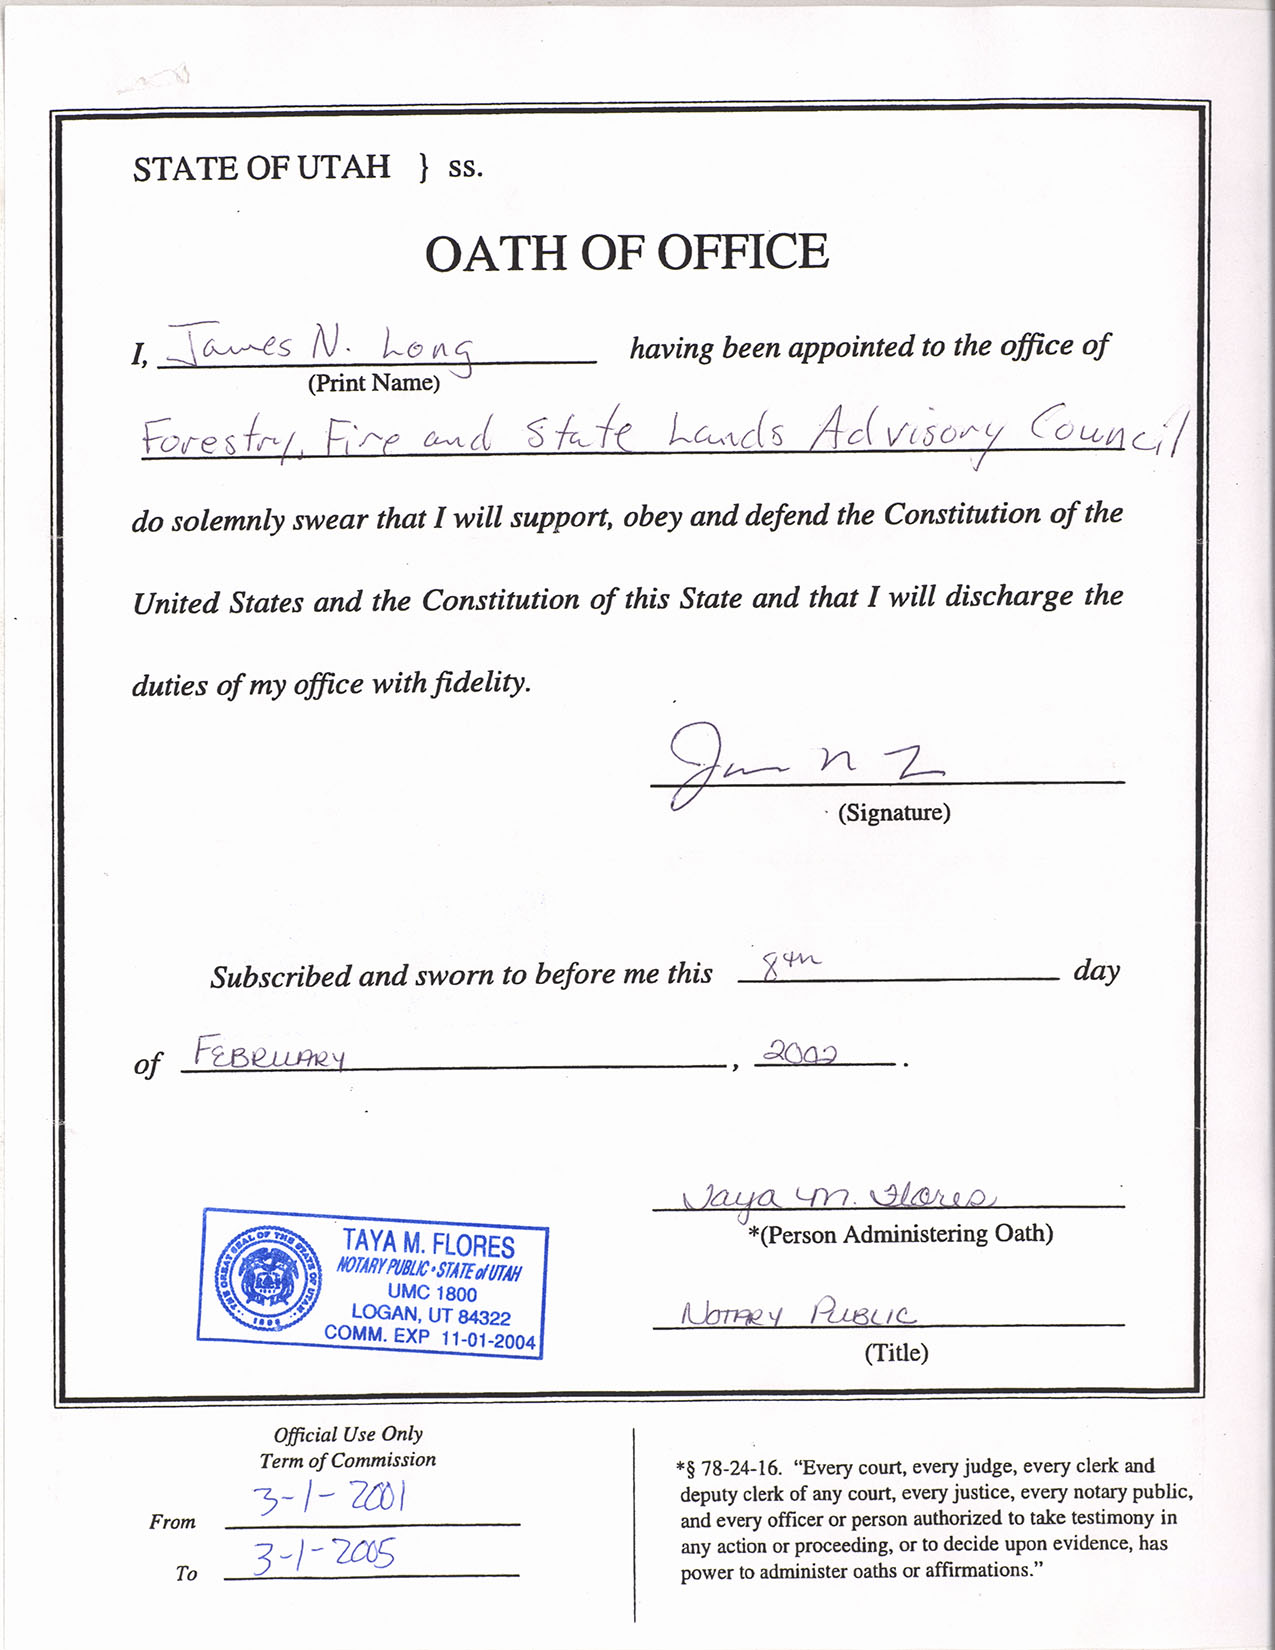 STATE OF UTAH } ss.
OATH OF OFFICE
I, James N. Long having been appointed to the office of
(Print Name)
Forestry, Fire and State Lands Advisory Council
do solemnly swear that I will support, obey and defend the Constitution of the
United States and the Constitution of this State and that I will discharge the
duties of my office with fidelity.
(Signature)
Subscribed and sworn to before me this 8th day
of FEBRUARY, 2002.
Taya M. Flores
*(Person Administering Oath)
NOTARY PUBLIC
(Title)
THE GREAT SEAL OF THE STATE OF UTAH
1896
TAYA M. FLORES
NOTARY PUBLIC • STATE of UTAH
UMC 1800
LOGAN, UT 84322
COMM. EXP 11-01-2004
Official Use Only
Term of Commission
From 3-1-2001
To 3-1-2005
*§ 78-24-16. “Every court, every judge, every clerk and
deputy clerk of any court, every justice, every notary public,
and every officer or person authorized to take testimony in
any action or proceeding, or to decide upon evidence, has
power to administer oaths or affirmations.”